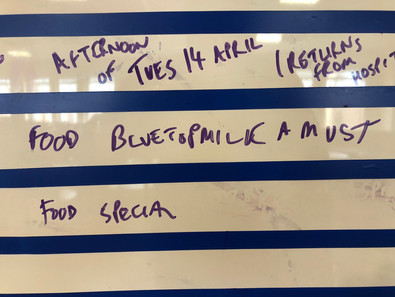 AFTERNOON OF TUES 14 APRIL (RETURNS FROM HOSPIT
FOOD BLUETOPMILK A MUST
FOOD SPECIAL